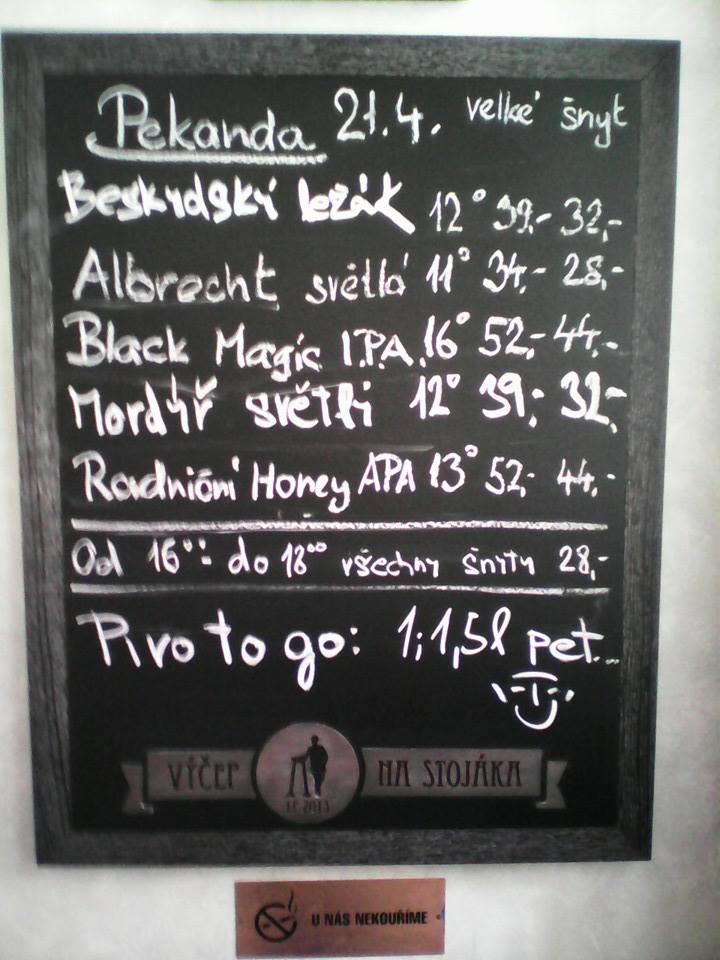 Pekanda 21.4. velké šnyt
Beskydský ležák 12° 39,- 32,-
Albrecht světlá 11° 34,- 28,-
Black Magic I.P.A. 16° 52,- 44,-
Mordýř světlý 12° 39,- 32,-
Radniční Honey APA 13° 52,- 44,-
Od 16⁰⁰ do 18⁰⁰ všechny šnyty 28,-
Pivo to go: 1;1,5l pet...
VÝČEP NA STOJÁKA
LP. 2013
U NÁS NEKOUŘÍME